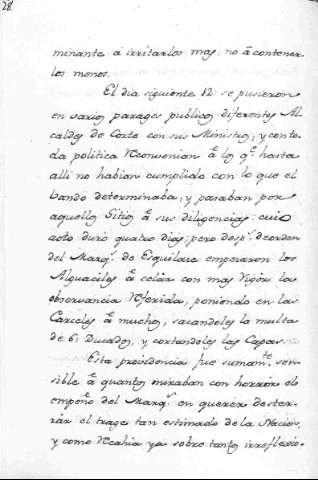 28.
minante á irritarlos mas, no á contener
los menos.
El dia siguiente 12 se pusieron
en varios parages publicos diferentes Al-
caldes de Corte con sus Ministros, y con to-
da politica reconvenian á los q.e hasta
alli no habian cumplido con lo que el
bando determinaba, y pasaban por
aquellos Sitios á sus diligencias: cuio
acto duró quatro dias; pero desp.s de orden
del Marq.s de Esquilace empezaron los
Alguaciles á celar con mas rigor la
observancia referida, poniendo en las
Carceles á muchos, sacandoles la multa
de 6 Ducados, y cortandoles las Capas.
Esta providencia fue sumam.te sen-
sible á quantos miraban con horror el
empeño del Marq.s en querer dester-
rar el trage tan estimado de la Nacion,
y como recahia ya sobre tanto irreflexio-